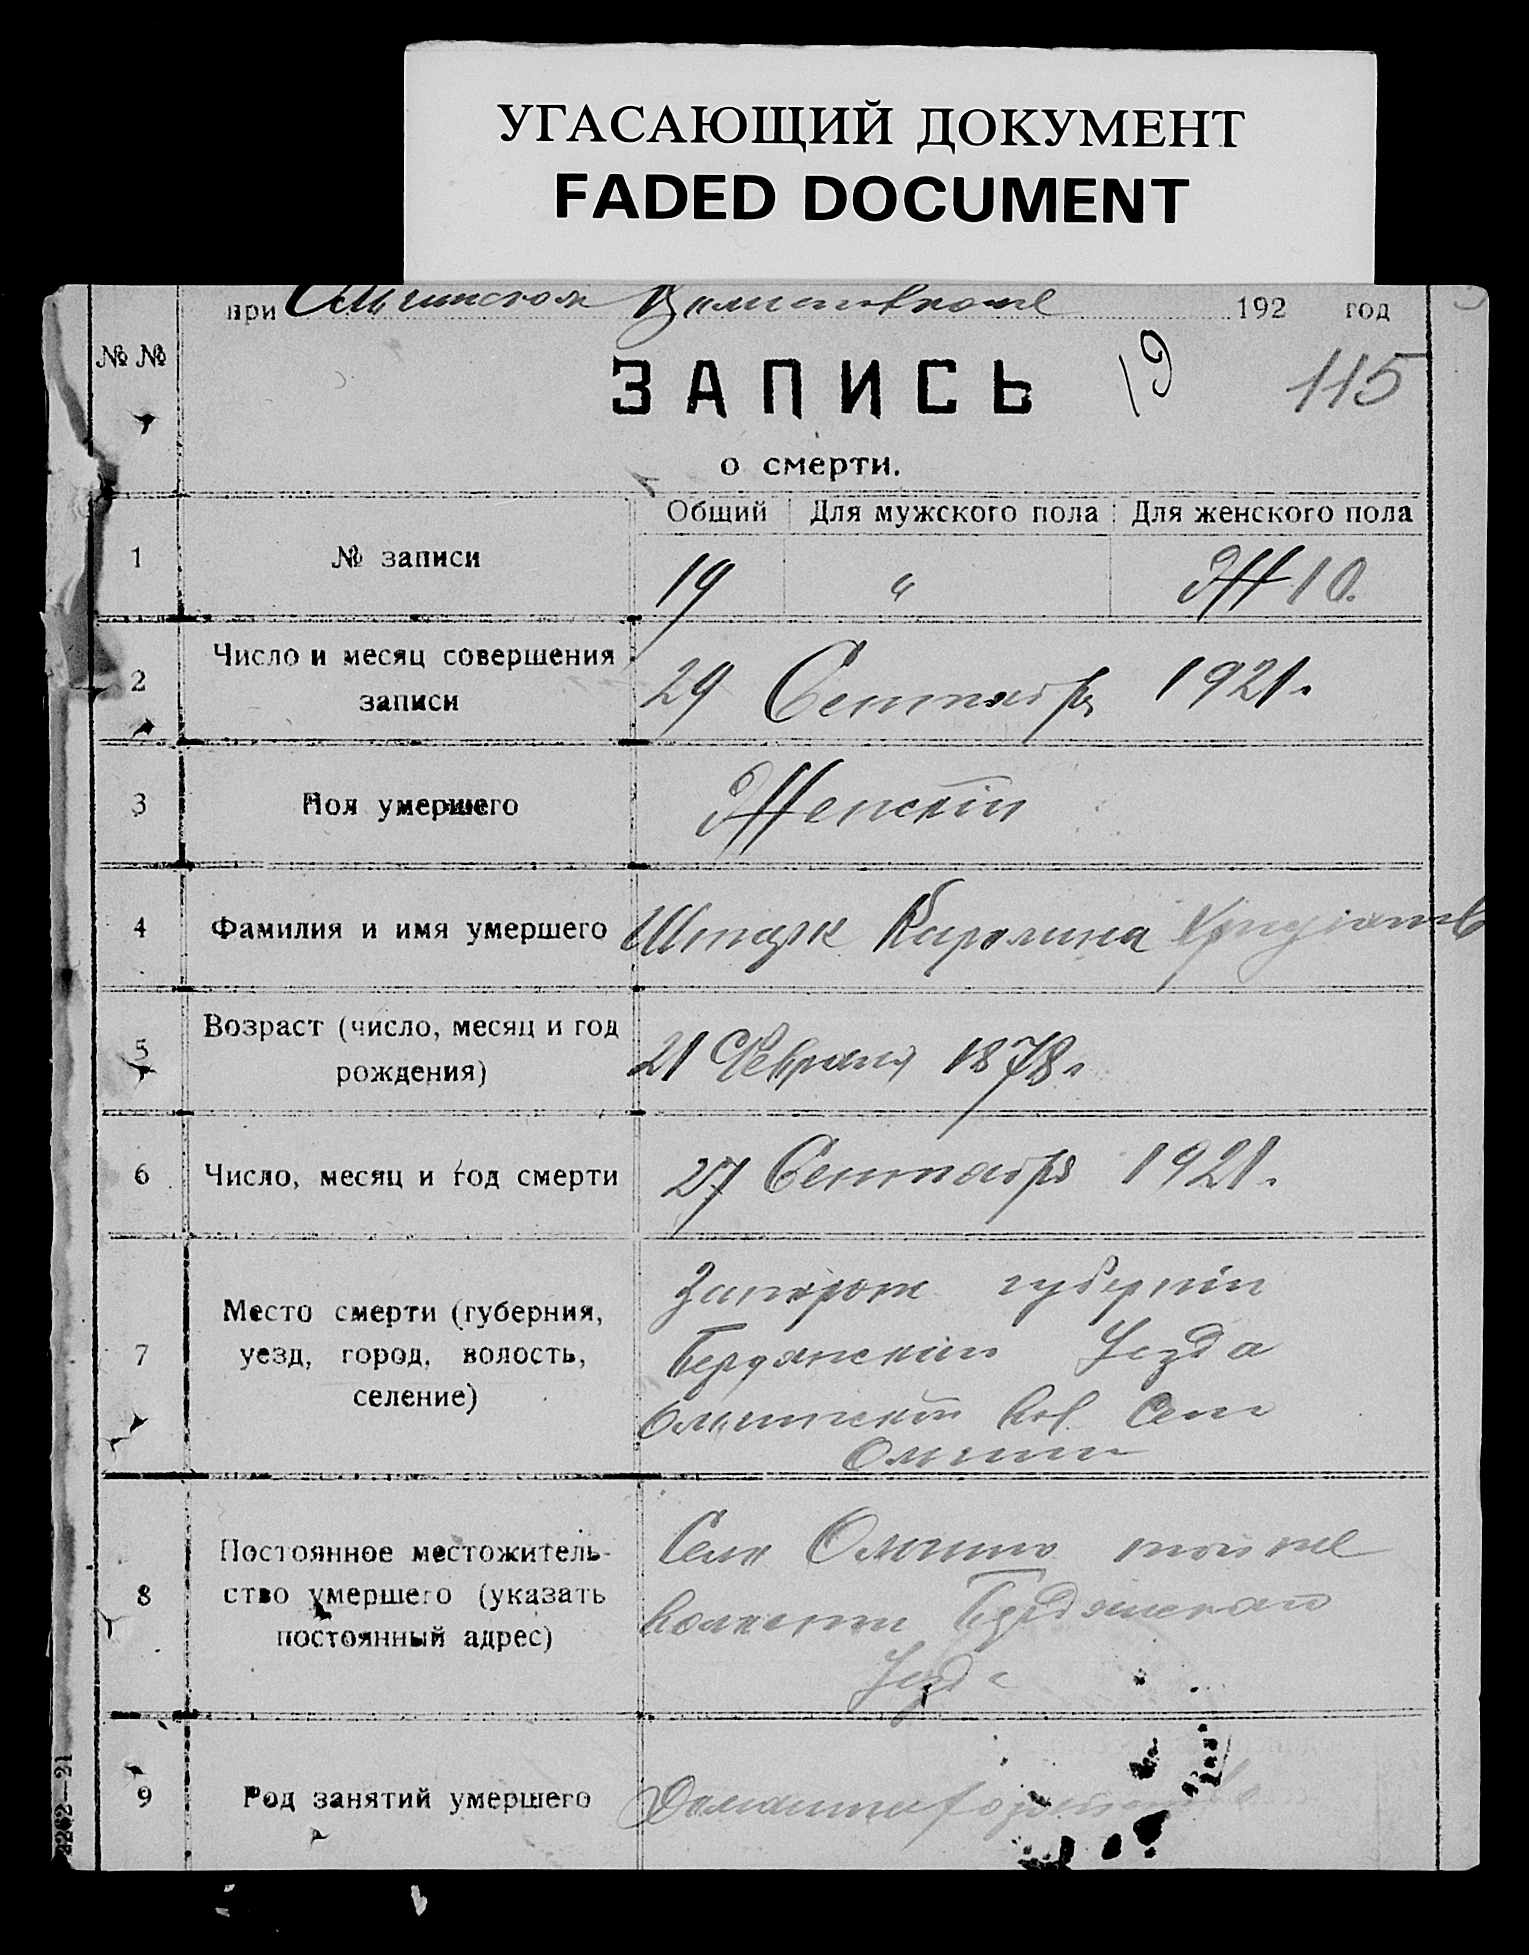 УГАСАЮЩИЙ ДОКУМЕНТ
FADED DOCUMENT
при 192 год
№ №
ЗАПИСЬ 19 115
о смерти.
Общий Для мужского пола Для женского пола
1 № записи 19 " Ж 10.
2 Число и месяц совершения
записи
29 Сентября 1921г.
3 Пол умершего Женскій
4 Фамилия и имя умершего Штарк Каролина
5 Возраст (число, месяц и год
рождения)
21 Февраля 1878г.
6 Число, месяц и год смерти 27 Сентября 1921г.
7 Место смерти (губерния,
уезд, город, волость,
селение)
Запорож губерніи
Бердянскаго Уезда
Ольгинской вол Село
Ольгино
8 Постоянное местожитель-
ство умершего (указать
постоянный адрес)
Село Ольгино той же
волости Бердянскаго
Уезда
9 Род занятий умершего
3262—21